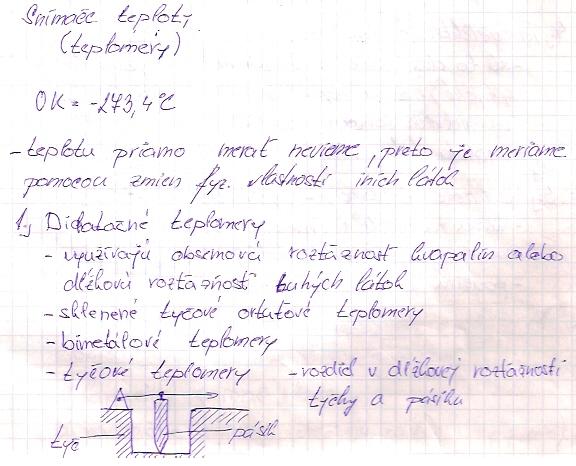 Snímače teploty
(teplomery)
0K = -273,4°C
- teplotu priamo merať nevieme, preto je meriame
pomocou zmien fyz. vlastností iních látok
1.) Dilatačné teplomery
- využívajú obsemovú roztážnosť kvapalín alebo
dĺžkovú roztážnosť tuhých látok
- sklenené tyčové ortuťové teplomery
- bimetálové teplomery
- tyčové teplomery - rozdiel v dĺžkovej roztážnosti
tyčky a pásiku
tyč
pásik